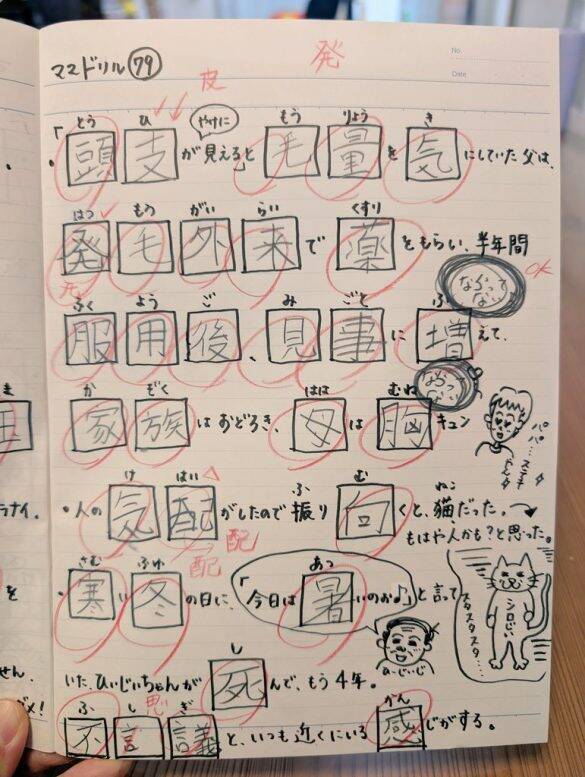 No.
Date
ママドリル 79
皮
発
とう ひ やけに もう りょう き
「頭支が見える」と毛量を気にしていた父は、
はつ もう がい らい くすり
発毛外来で薬をもらい、半年間
OK
ふく よう ご み ごと ふ
服用後、見事に増えて、
か ぞく はは むね
家族はおどろき、母は胸キュン
パパ…ステキやん
け はい ふ む ねこ
・人の気配がしたので振り向くと、猫だった。
もはや人かも?と思った。
配 配
さむ ふゆ あつ
・寒い冬の日に、「今日は暑いのお♪」と言って
ひいじいじ
シロじい
スタスタスタ…
し
いた、ひいじいちゃんが死んで、もう4年。
ふ し ぎ かん
思
不言議と、いつも近くにいる感じがする。
ま
ラナイ.
を
せん.
ダメ!